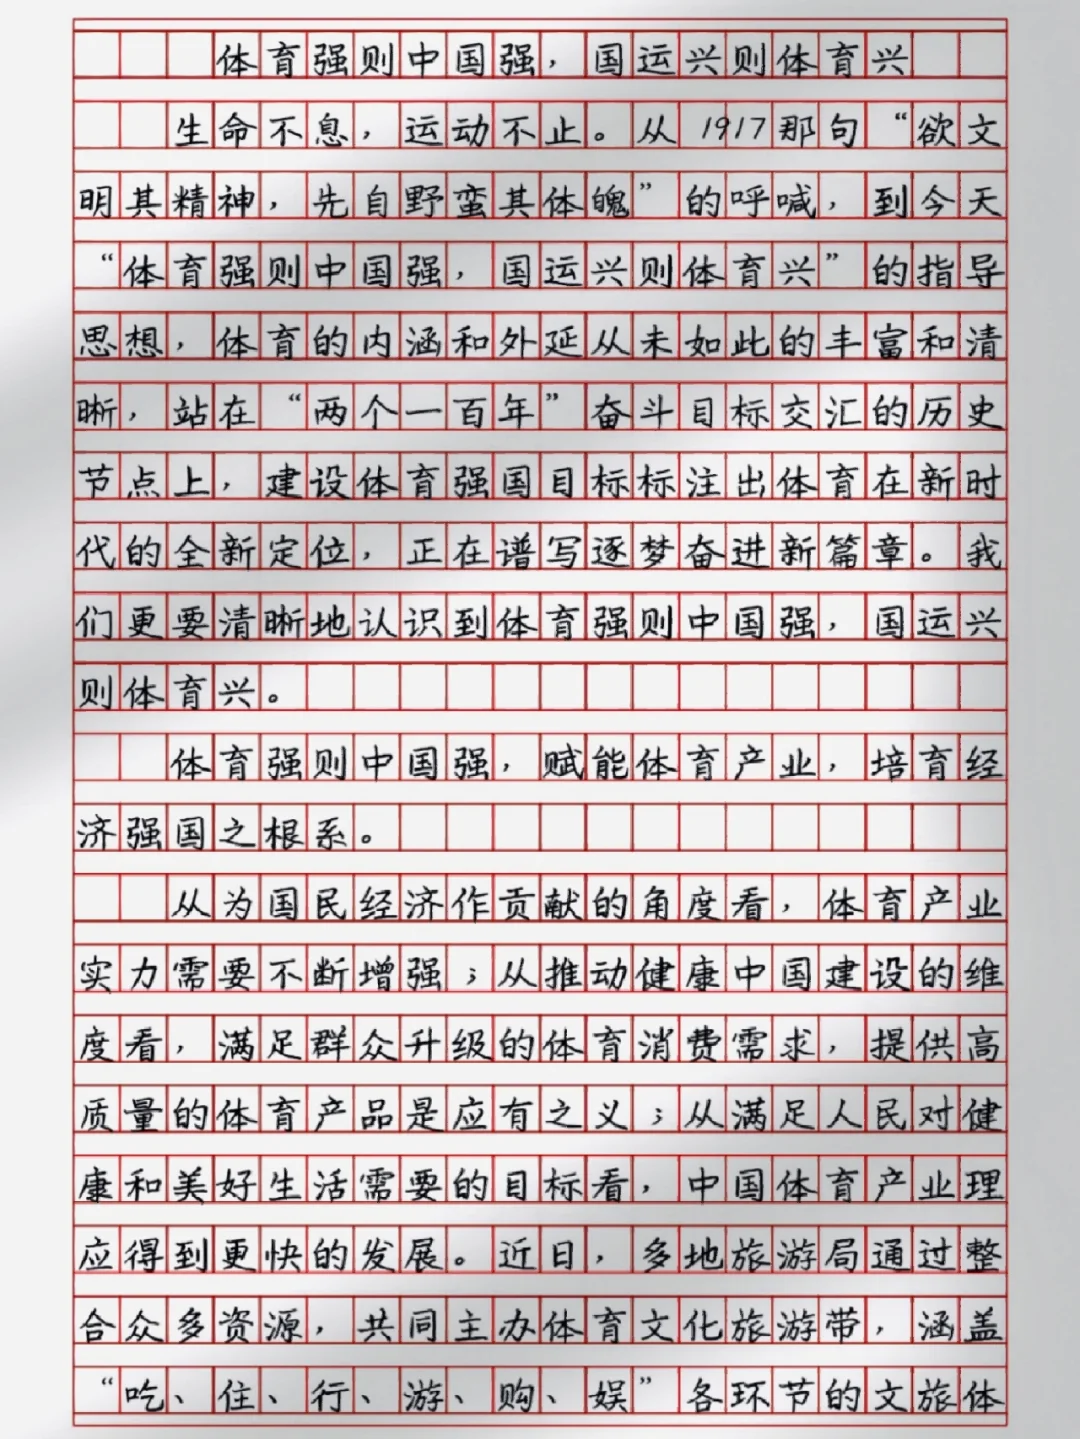 体育强则中国强，国运兴则体育兴
生命不息，运动不止。从1917那句“欲文
明其精神，先自野蛮其体魄”的呼喊，到今天
“体育强则中国强，国运兴则体育兴”的指导
思想，体育的内涵和外延从未如此的丰富和清
晰，站在“两个一百年”奋斗目标交汇的历史
节点上，建设体育强国目标标注出体育在新时
代的全新定位，正在谱写逐梦奋进新篇章。我
们更要清晰地认识到体育强则中国强，国运兴
则体育兴。
体育强则中国强，赋能体育产业，培育经
济强国之根系。
从为国民经济作贡献的角度看，体育产业
实力需要不断增强；从推动健康中国建设的维
度看，满足群众升级的体育消费需求，提供高
质量的体育产品是应有之义；从满足人民对健
康和美好生活需要的目标看，中国体育产业理
应得到更快的发展。近日，多地旅游局通过整
合众多资源，共同主办体育文化旅游带，涵盖
“吃、住、行、游、购、娱”各环节的文旅体